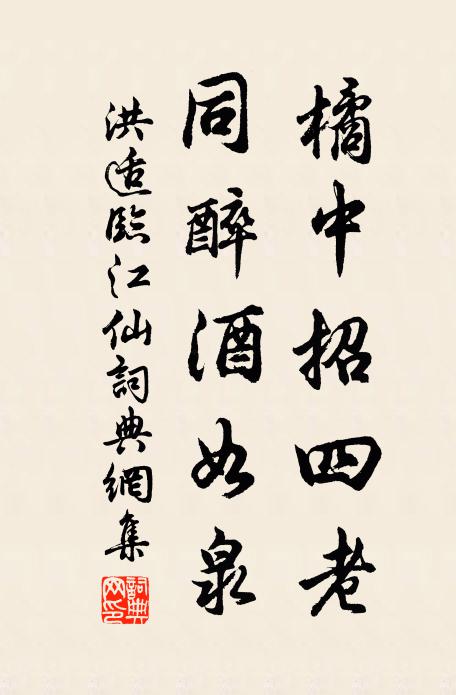 橘中招四老
同醉酒如泉
洪适臨江仙詞典網集
詞典網印